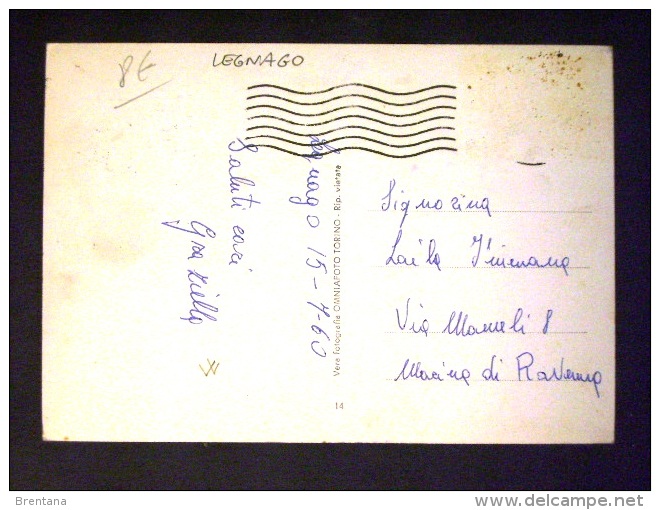 8€
LEGNAGO
Legnago 15-7-60
Saluti cari
Graziella
Vera Fotografia OMNIAFOTO TORINO - Rip. vietata
14
Signorina
Laila
Via Mameli 8
Marina di Ravenna
Brentana
delcampe.net